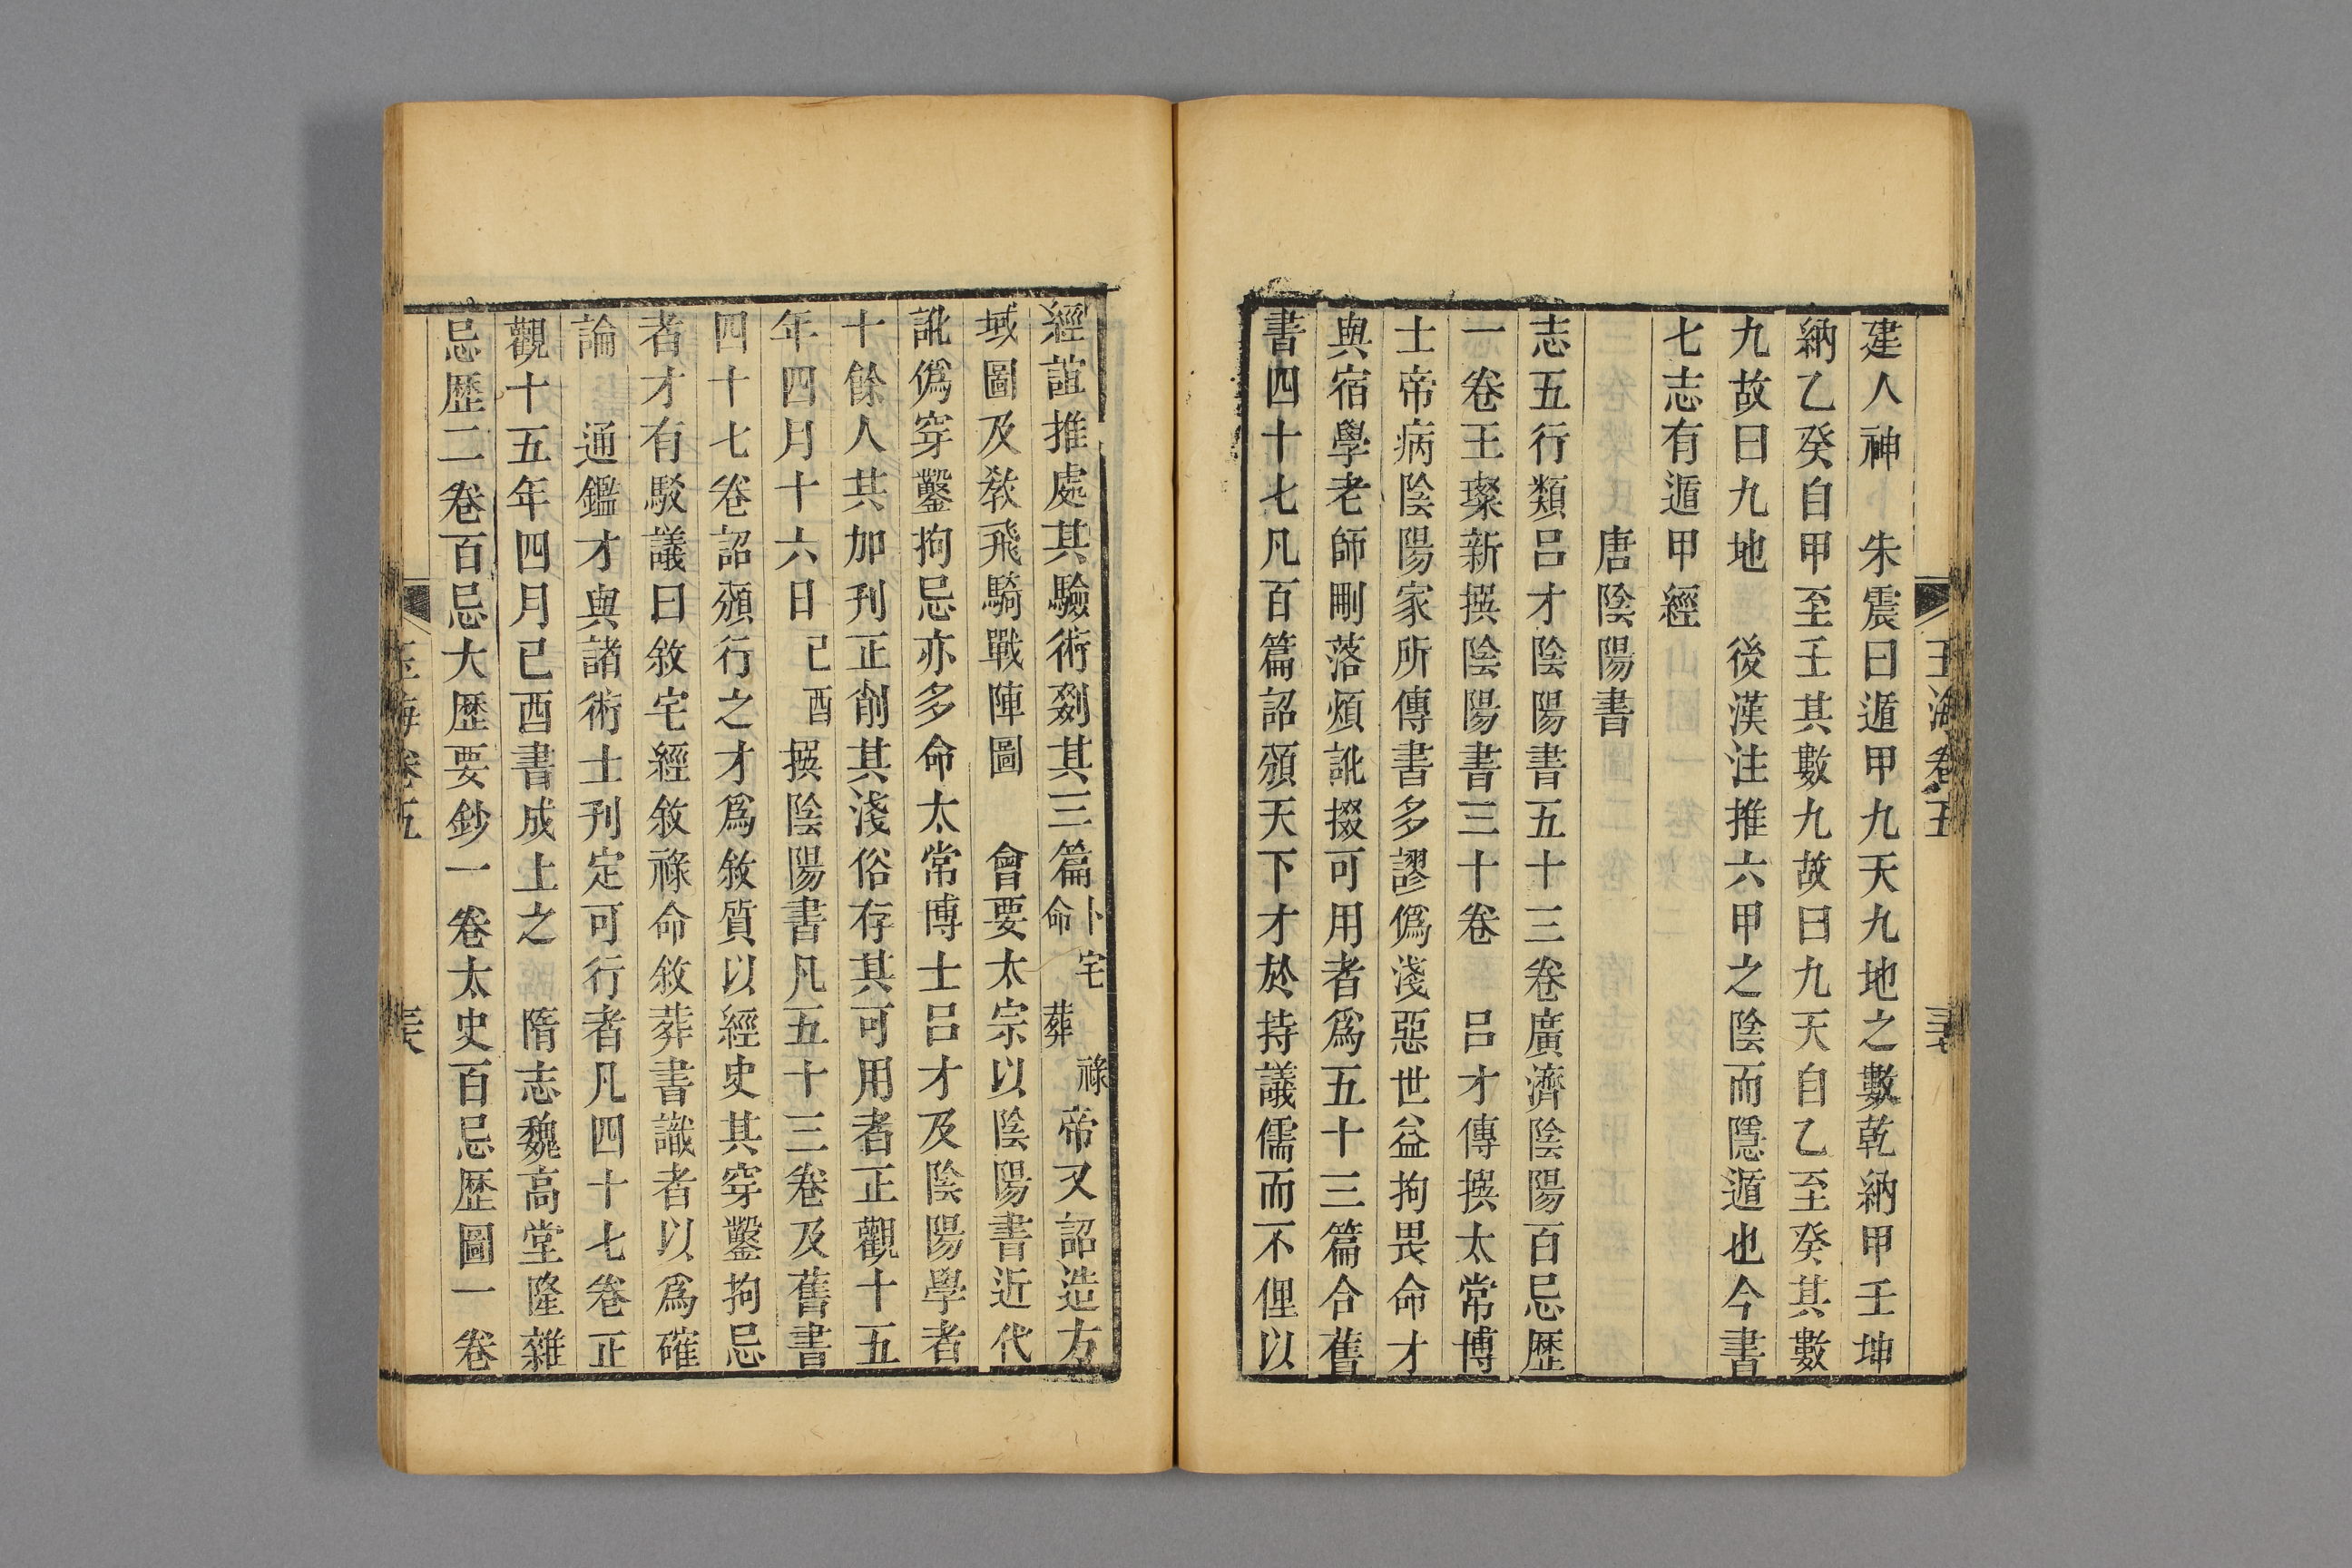 建人神　朱震曰遁甲九天九地之數乾納甲壬坤
納乙癸自甲至壬其數九故曰九天自乙至癸其數
九故曰九地　後漢注推六甲之陰而隱遁也今書
七志有遁甲經
唐陰陽書
志五行類呂才陰陽書五十三卷廣濟陰陽百忌歷
一卷王璨新撰陰陽書三十卷　呂才傳撰太常博
士帝病陰陽家所傳書多謬僞淺惡世益拘畏命才
與宿學老師刪落煩訛掇可用者爲五十三篇合舊
書四十七凡百篇詔頒天下才於持議儒而不俚以
經誼推處其驗術剟其三篇卜宅祿命葬帝又詔造方
域圖及敎飛騎戰陣圖　會要太宗以陰陽書近代
訛僞穿鑿拘忌亦多命太常博士呂才及陰陽學者
十餘人共加刋正削其淺俗存其可用者正觀十五
年四月十六日己酉撰陰陽書凡五十三卷及舊書
四十七卷詔頒行之才爲敘質以經史其穿鑿拘忌
者才有駁議曰敘宅經敘祿命敘葬書識者以爲確
論　通鑑才與諸術士刋定可行者凡四十七卷正
觀十五年四月己酉書成上之　隋志魏高堂隆雜
忌歷二卷百忌大歷要鈔一卷太史百忌歷圖一卷
玉海卷五